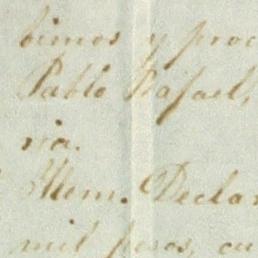 bimos y proc
Pablo Rafael,
ria.
Ittem. Declar
mil pesos, cu